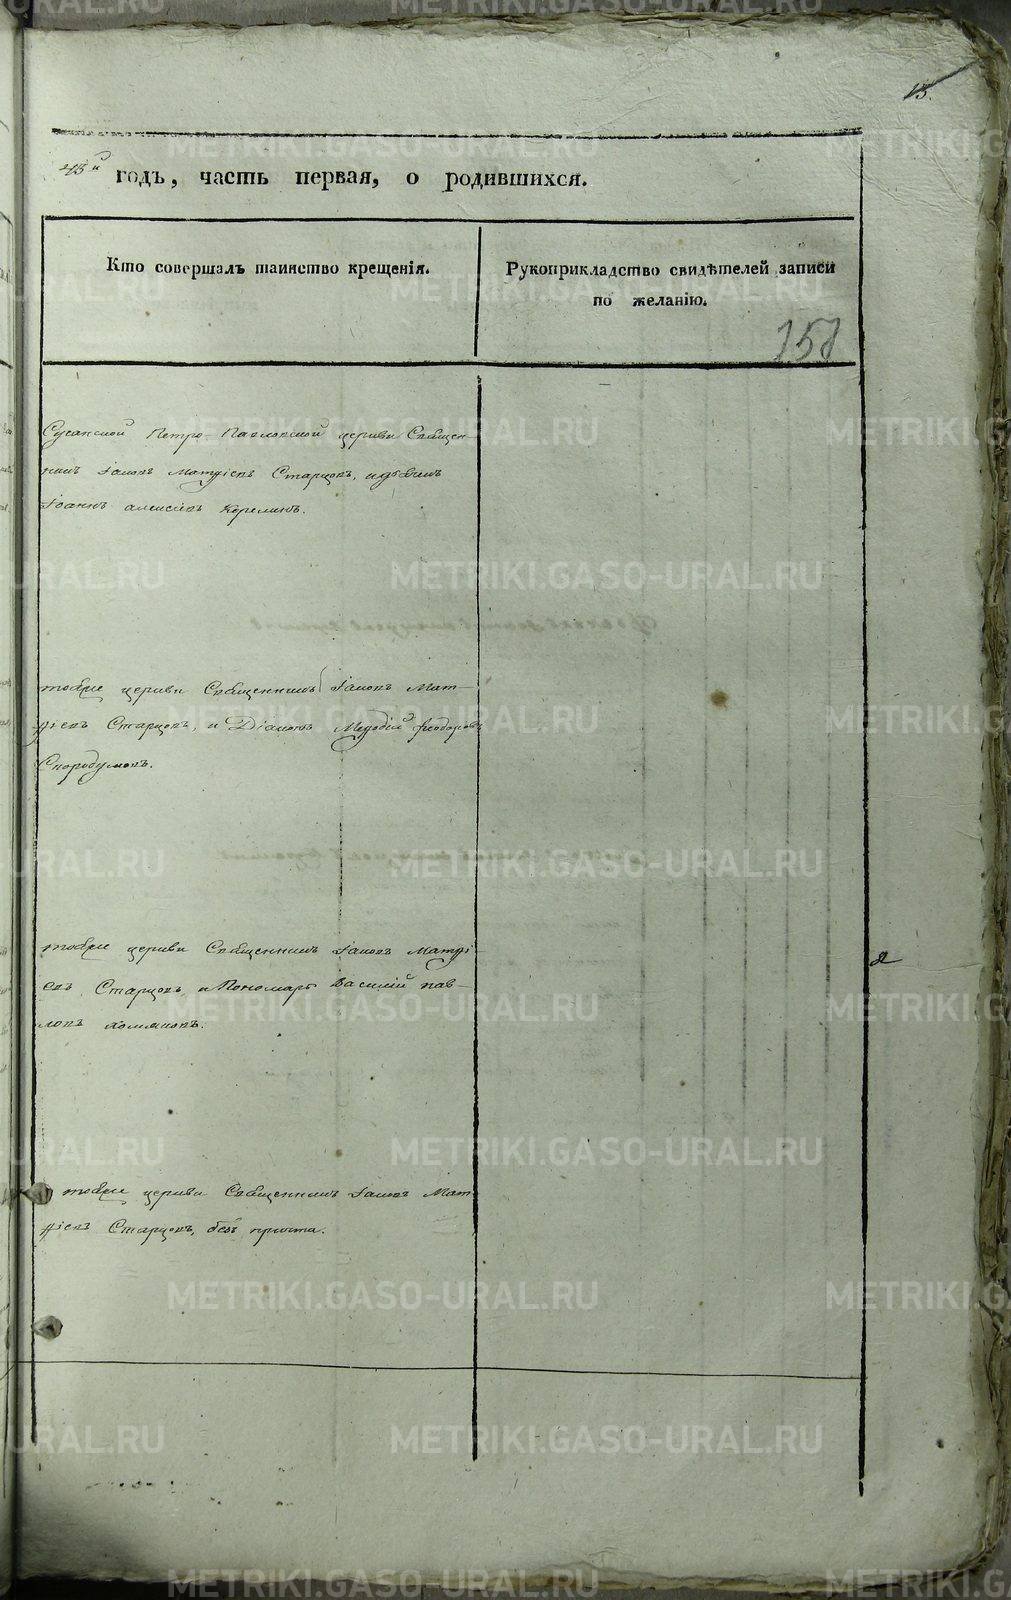 13.
43й годъ, часть первая, о родившихся.
Кто совершалъ таинство крещенія.
Рукоприкладство свидѣтелей записи
по желанію.
158
Сусанской Петро-Павловской церкви Священ-
никъ Іаковъ Матѳіевъ Старцовъ, и дьячекъ
Іоаннъ Алексіевъ Корелинъ.
тоя же церкви Священникъ Іаковъ Мат-
ѳіевъ Старцовъ, и Діаконъ Меѳодій Ѳеодоровъ
Скородумовъ.
тоя же церкви Священникъ Іаковъ Матѳі-
евъ Старцовъ и Пономарь Василій Пав-
ловъ
тоя же церкви Священникъ Іаковъ Мат-
ѳіевъ Старцовъ, безъ причта.
METRIKI.GASO-URAL.RU